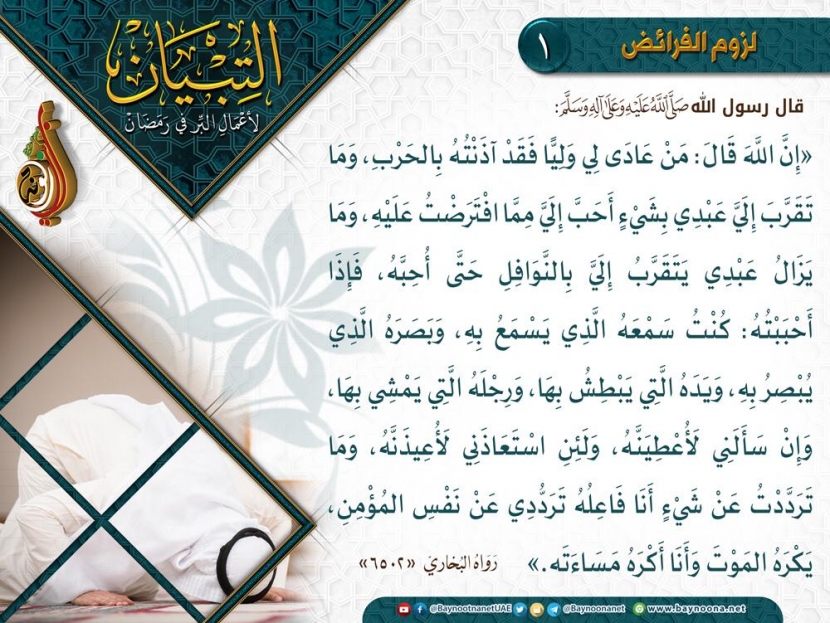 التِّبْيَان
لأَعْمَالِ البِرِّ فِي رَمَضَانَ
١
لزوم الفرائض
قال رسول الله صَلَّى اللَّهُ عَلَيْهِ وَعَلَىٰ آلِهِ وَسَلَّمَ:
«إِنَّ اللَّهَ قَالَ: مَنْ عَادَى لِي وَلِيًّا فَقَدْ آذَنْتُهُ بِالحَرْبِ، وَمَا
تَقَرَّبَ إِلَيَّ عَبْدِي بِشَيْءٍ أَحَبَّ إِلَيَّ مِمَّا افْتَرَضْتُ عَلَيْهِ، وَمَا
يَزَالُ عَبْدِي يَتَقَرَّبُ إِلَيَّ بِالنَّوَافِلِ حَتَّى أُحِبَّهُ، فَإِذَا
أَحْبَبْتُهُ: كُنْتُ سَمْعَهُ الَّذِي يَسْمَعُ بِهِ، وَبَصَرَهُ الَّذِي
يُبْصِرُ بِهِ، وَيَدَهُ الَّتِي يَبْطِشُ بِهَا، وَرِجْلَهُ الَّتِي يَمْشِي بِهَا،
وَإِنْ سَأَلَنِي لَأُعْطِيَنَّهُ، وَلَئِنِ اسْتَعَاذَنِي لَأُعِيذَنَّهُ، وَمَا
تَرَدَّدْتُ عَنْ شَيْءٍ أَنَا فَاعِلُهُ تَرَدُّدِي عَنْ نَفْسِ المُؤْمِنِ،
يَكْرَهُ المَوْتَ وَأَنَا أَكْرَهُ مَسَاءَتَه.» رَوَاهُ البُخَارِيّ «٦٥٠٢»
@BaynootnanetUAE @Baynoonanet www.baynoona.net